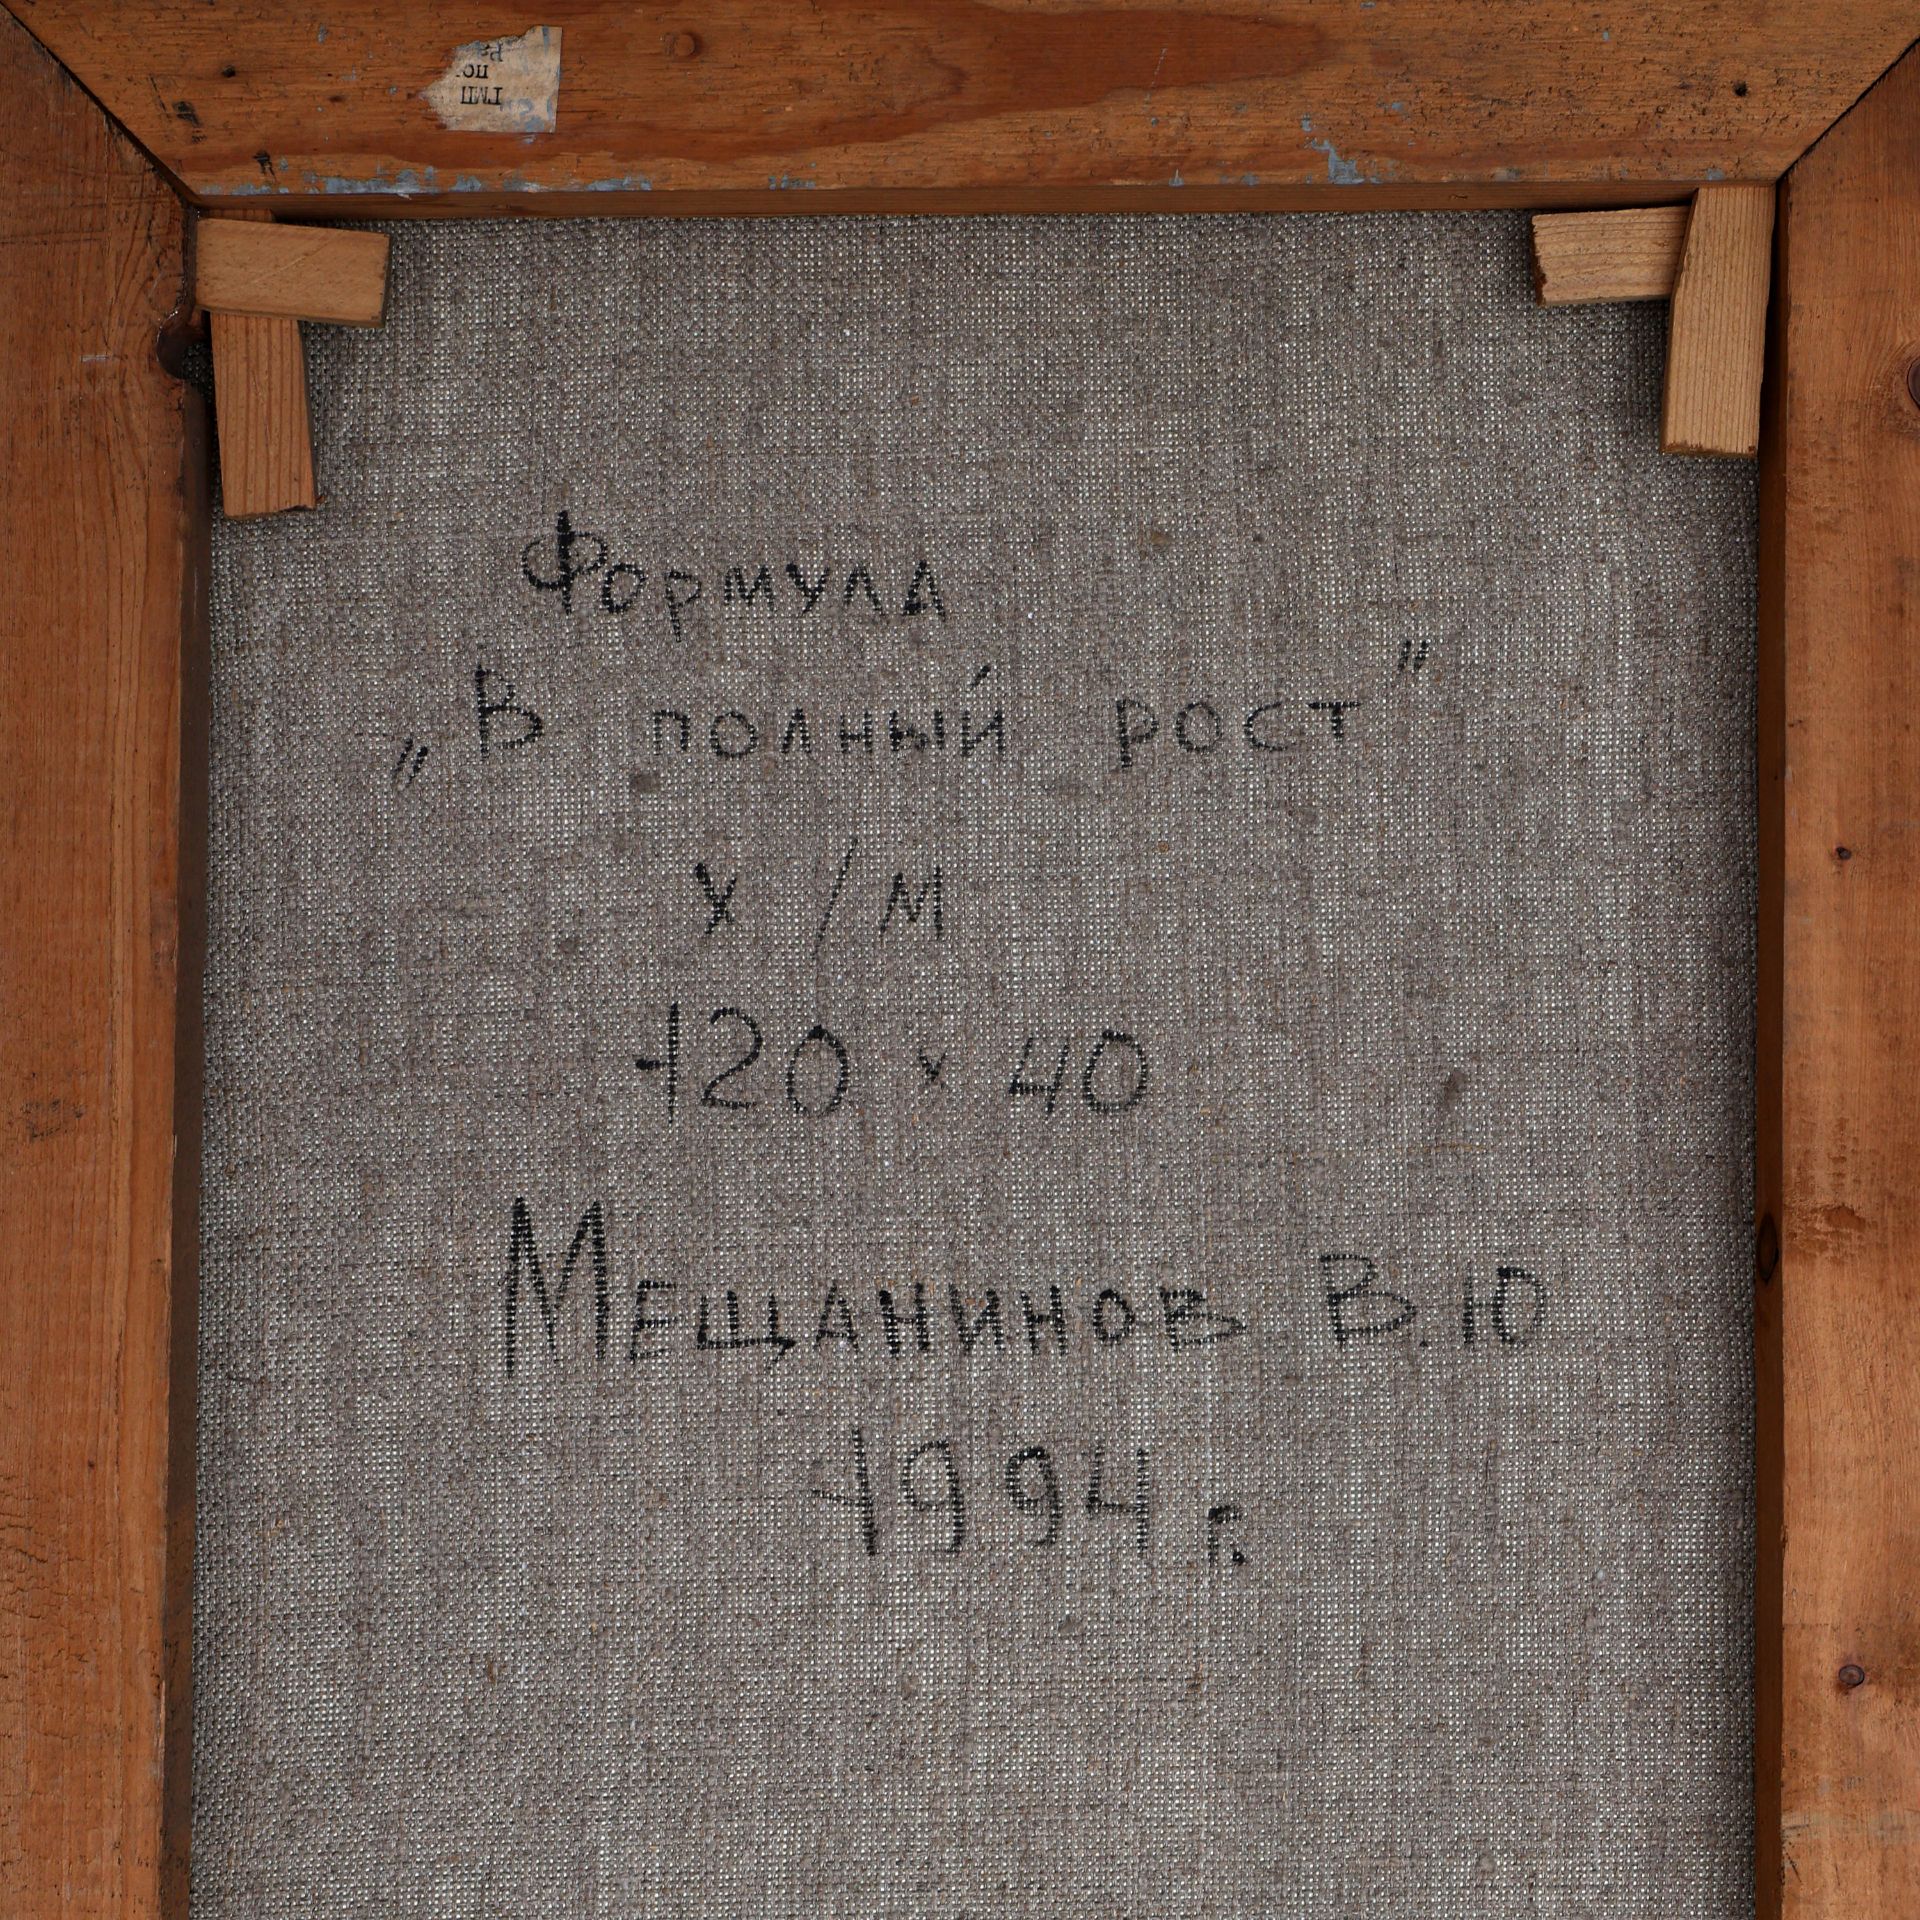 Формула
„В полный рост"
х/м
120 х 40
Мещанинов В.Ю
1994 г.
ГМП